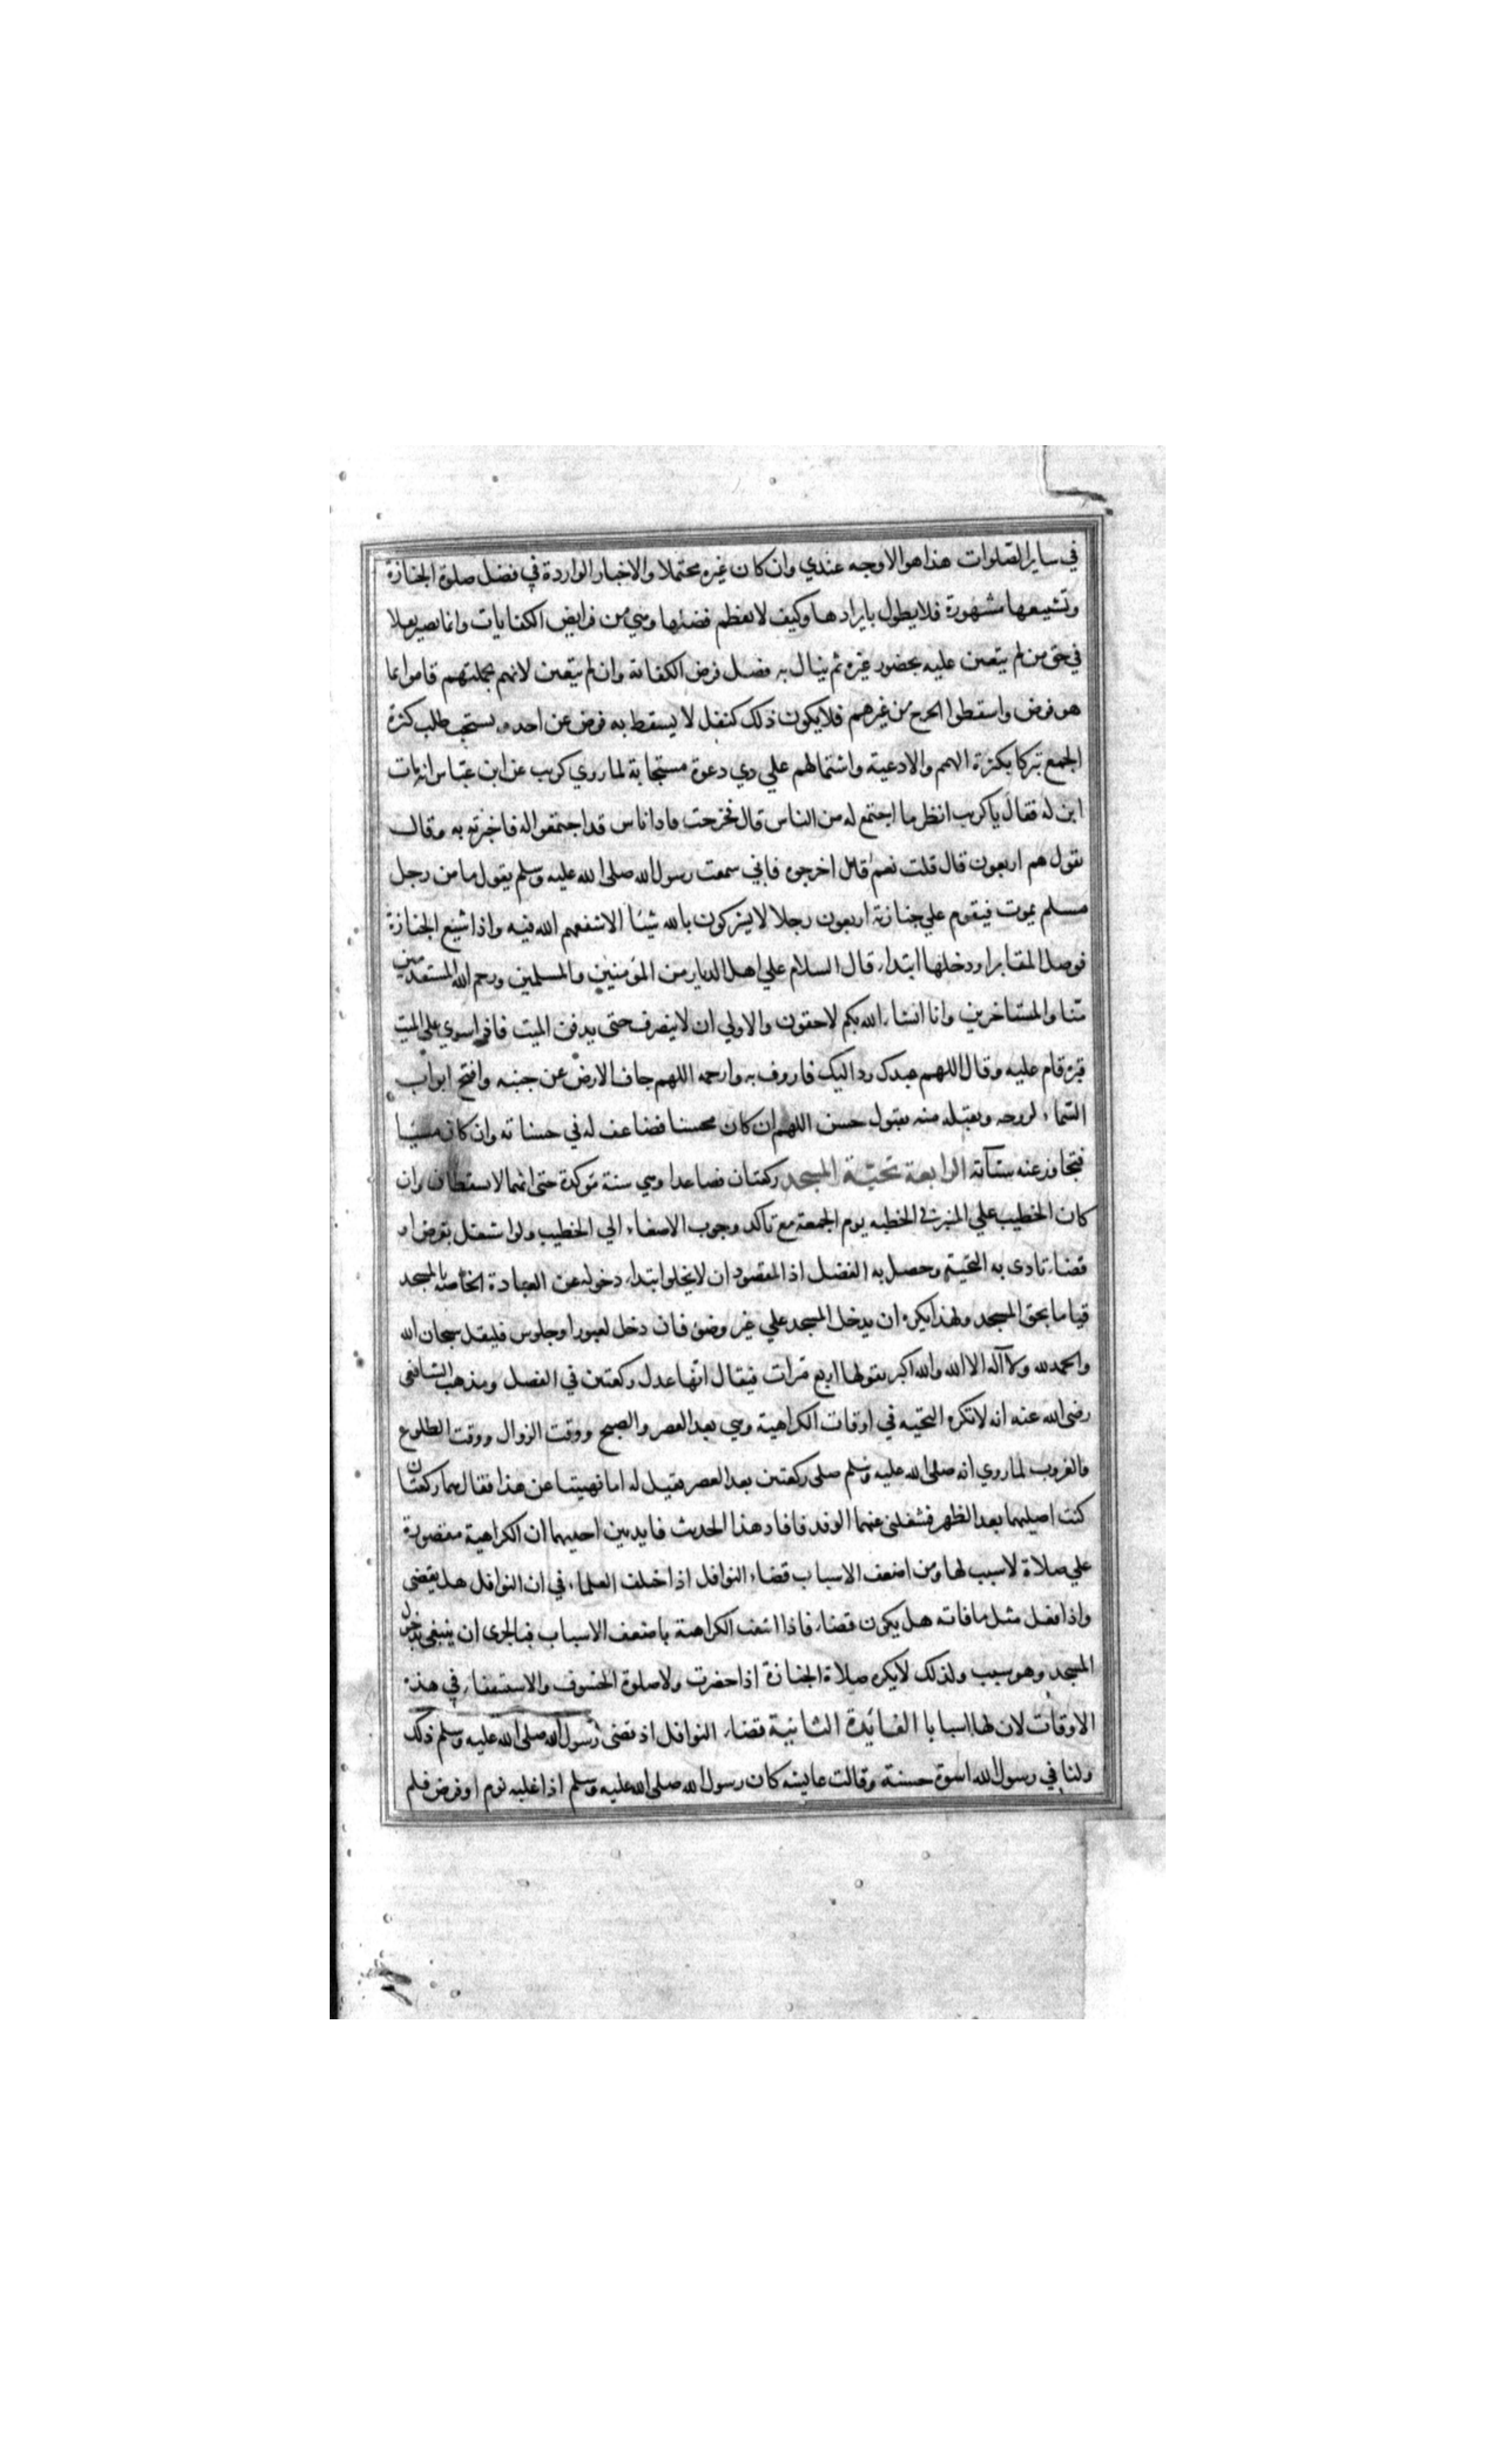 في ساير الصلوات هذا هو الاوجه عندي وان كان غيره محتملا والاخبار الواردة في فضل صلوة الجنازة
وتشييعها مشهورة فلا يطول بايرادها وكيف لا يعظم فضلها وهي من فرايض الكفايات وانما يصير نفلا
في حق من لم يتعين عليه بحضور غيره ثم ينال به فضل فرض الكفاية وان لم يتعين لانهم بجملتهم قاموا بما
هو فرض واسقطوا الحرج من غيرهم فلا يكون ذلك كنفل لا يسقط به فرض عن احد ويستحب طلب كثرة
الجمع تبركا بكثرة الهمم والادعية واشتمالهم علي ذي دعوة مستجابة لما روي كريب عن ابن عباس انه مات
ابن له فقال يا كريب انظر ما اجتمع له من الناس قال فخرجت فاذا ناس قد اجتمعوا له فاخبرته به وقال
يقول هم اربعون قال قلت نعم قال اخرجوه فاني سمعت رسول الله صلى الله عليه وسلم يقول ما من رجل
مسلم يموت فيقوم علي جنازته اربعون رجلا لا يشركون بالله شيئا الا شفعهم الله فيه واذا شيع الجنازة
فوصل المقابر او دخلها ابتداء قال السلام علي اهل الديار من المؤمنين والمسلمين ورحم الله المستقدمين
منا والمستاخرين وانا انشاء الله بكم لاحقون والاولي ان لا ينصرف حتى يدفن الميت فاذا سوي علي الميت
قبره قام عليه وقال اللهم عبدك رد اليك فاروف به وارحمه اللهم جاف الارض عن جنبيه وافتح ابواب
السماء لروحه وتقبله منه بقبول حسن اللهم ان كان محسنا فضاعف له في حسناته وان كان مسيئا
فتجاوز عنه سيئاته الرابعة تحية المسجد ركعتان فصاعدا وهي سنة مؤكدة حتى انها لا تسقط وان
كان الخطيب علي المنبر في الخطبه يوم الجمعة مع تاكد وجوب الاصغاء الي الخطيب ولو اشتغل بفرض او
قضاء تادى به التحية وحصل به الفضل اذ المقصود ان لا يخلو ابتداء دخوله عن العبادة الخاصة بالمسجد
قياما بحق المسجد ولهذا يكره ان يدخل المسجد علي غير وضوء فان دخل لعبور او جلوس فليقل سبحان الله
والحمد لله ولا اله الا الله والله اكبر يقولها اربع مرات فيقال انها عدل ركعتين في الفضل ومذهب الشافعي
رضي الله عنه انه لا تكره التحيه في اوقات الكراهية وهي بعد العصر والصبح ووقت الزوال ووقت الطلوع
والغروب لما روي انه صلى الله عليه وسلم صلى ركعتين بعد العصر فقيل له اما نهيتنا عن هذا فقال هما ركعتان
كنت اصليهما بعد الظهر فشغلني عنهما الوفد فافاد هذا الحديث فايدتين احديهما ان الكراهية مقصورة
علي صلاة لا سبب لها ومن اضعف الاسباب قضاء النوافل اذ اختلف العلماء في ان النوافل هل يقضى
واذا فعل مثل ما فاته هل يكون قضاء فاذا انتفت الكراهة باضعف الاسباب فبالحرى ان ينتفي بدخول
المسجد وهو سبب ولذلك لا يكره صلاة الجنازة اذا حضرت ولا صلوة الخسوف والاستسقاء في هذه
الاوقات لان لها اسبابا الفائدة الثانية قضاء النوافل اذ قضى رسول الله صلى الله عليه وسلم ذلك
ولنا في رسول الله اسوة حسنة وقالت عايشه كان رسول الله صلى الله عليه وسلم اذا غلبه نوم او مرض فلم